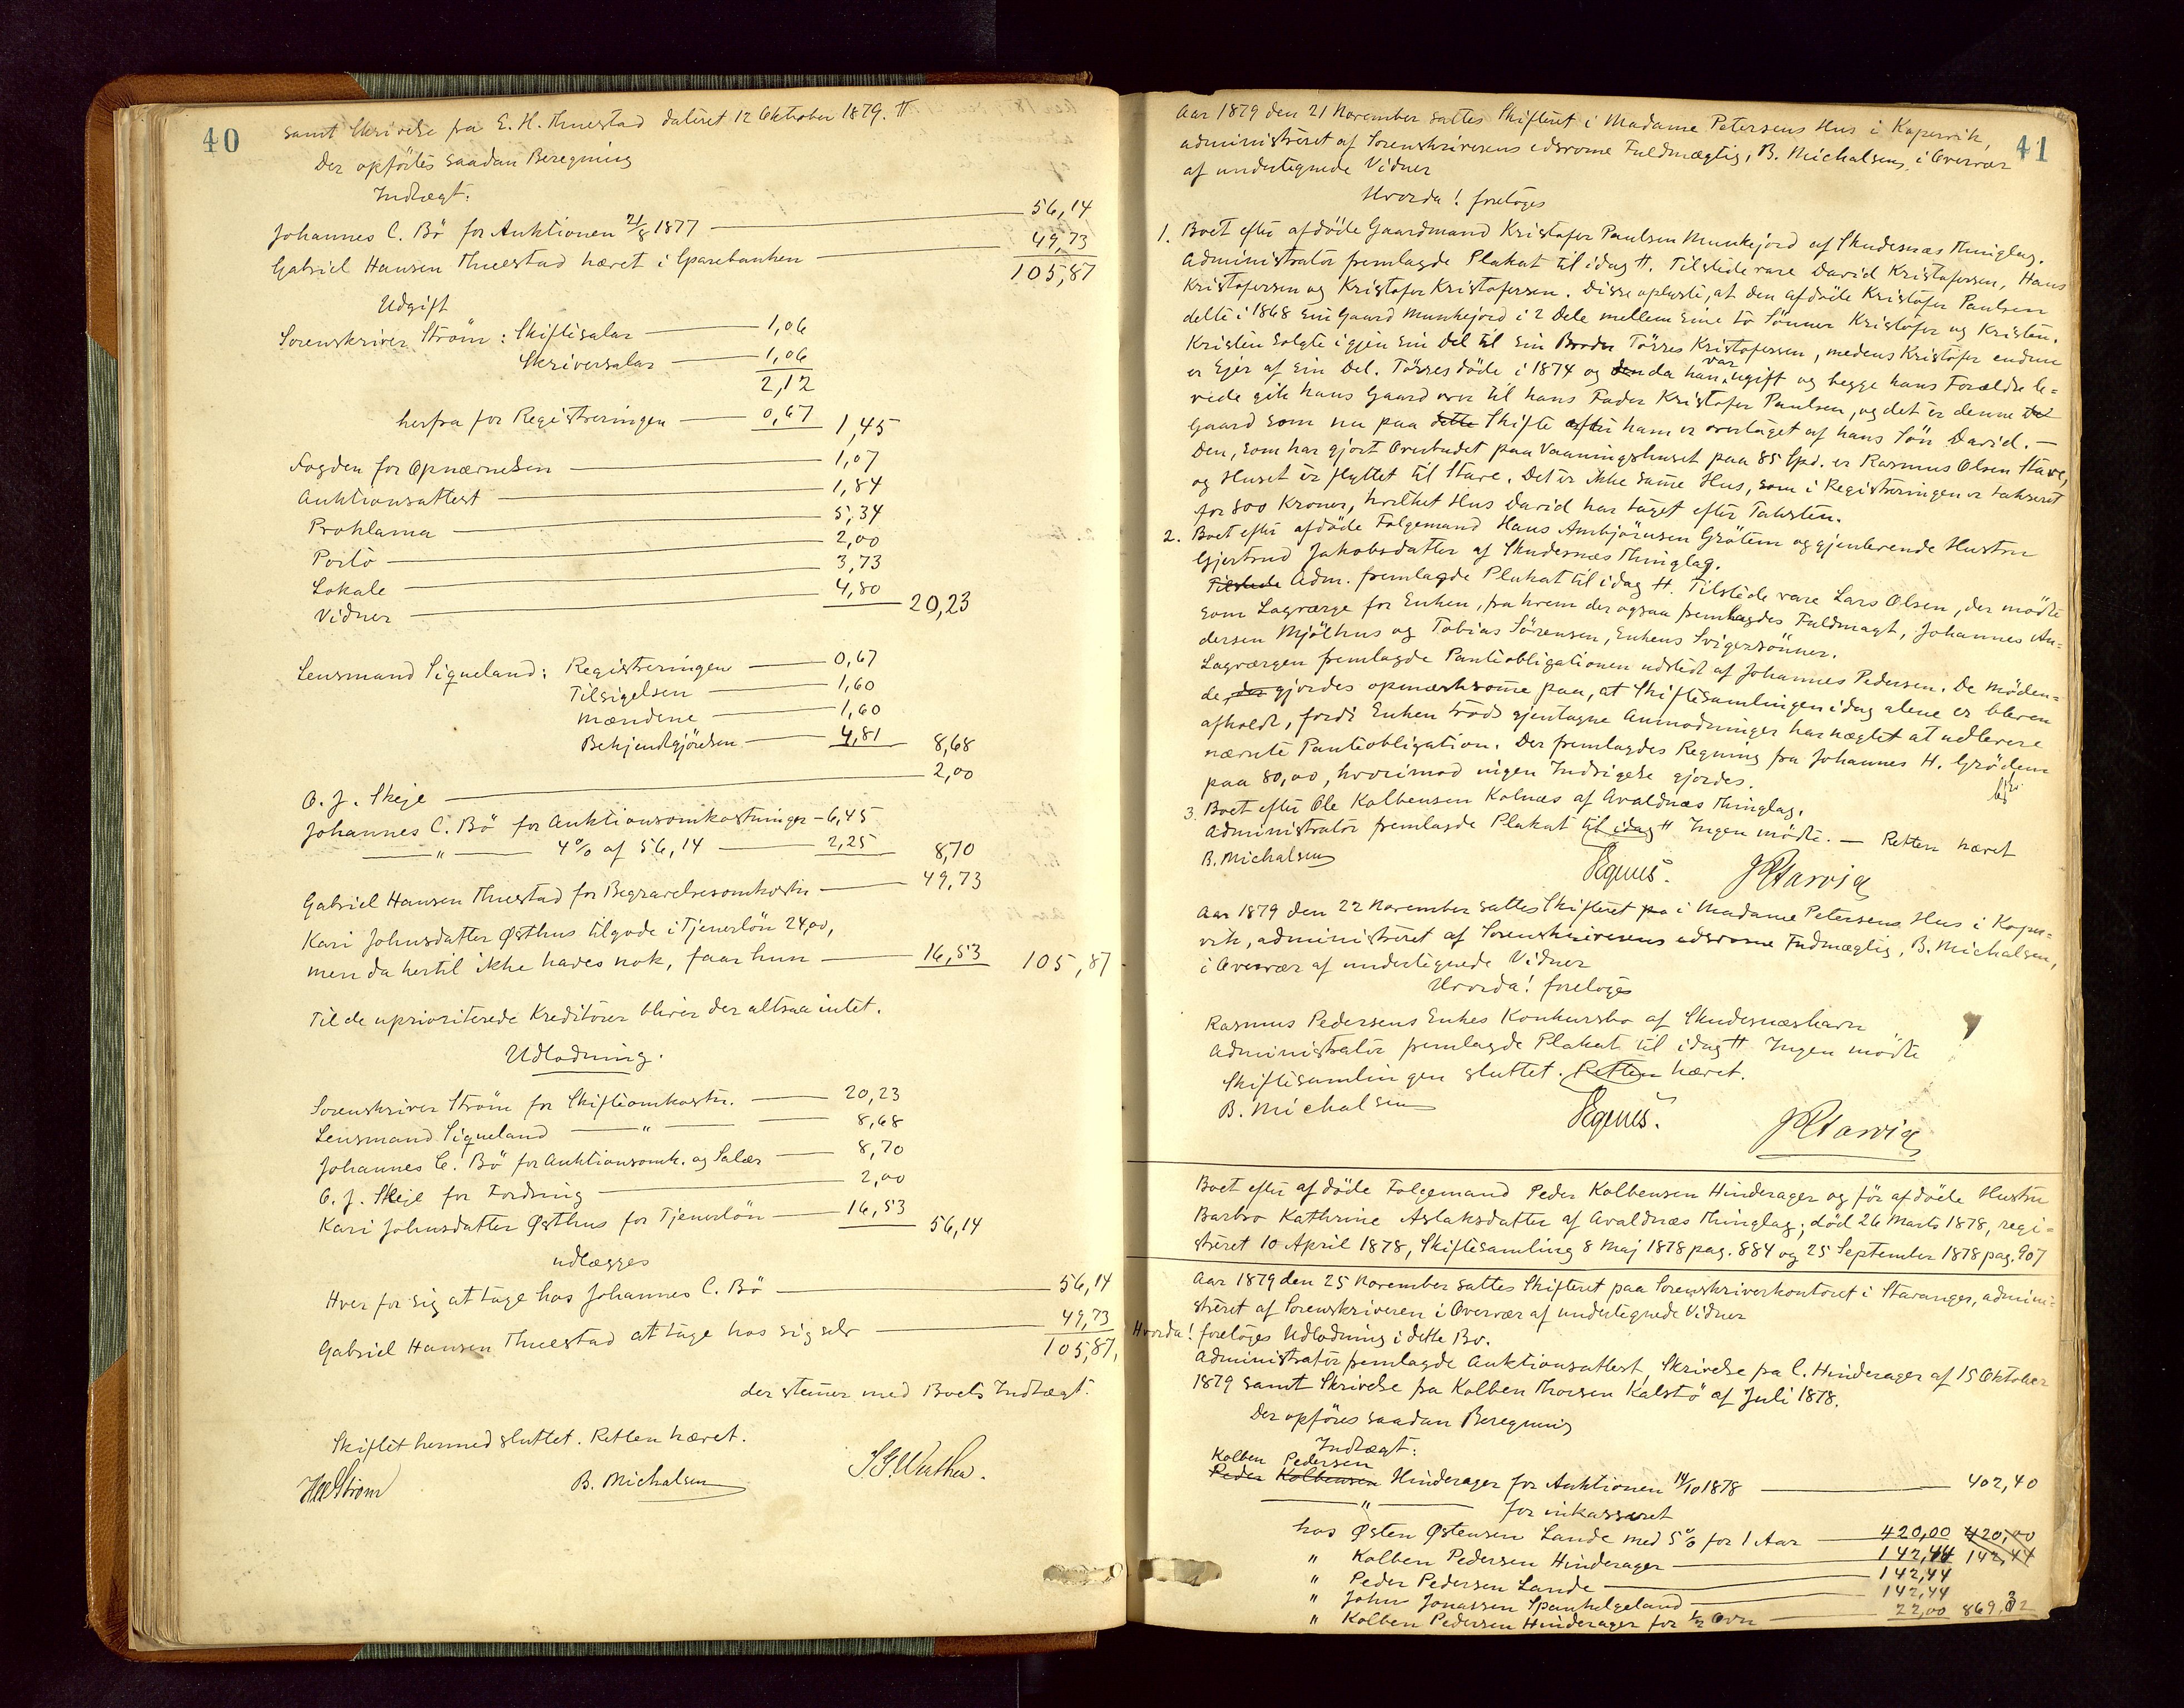 40
samt Skrivelse fra E. H. Thuestad dateret 12 Oktober 1879. #
Der opförtes saadan Beregning
Indtægt:
Johannes C. Bö for Auktionen 21/8 1877 — 56,14
Gabriel Hansen Thuestad hævet i Sparebanken — 49,73
105,87
Udgift
Sorenskriver Ström: Skiftesalær — 1,06
Skriversalær — 1,06
2,12
herfra for Registreringen — 0,67 1,45
Fogden for Opnævnelsen — 1,07
Auktionsattest — 1,84
Proklama — 5,34
Porto — 2,00
Lokale — 3,73
Vidner — 4,80 20,23
Lensmand Siqueland: Registreringen — 0,67
Tilsigelsen — 1,60
Mændene — 1,60
Bekjendtgjörelsen — 4,81 8,68
O. J. Skeje — 2,00
Johannes C. Bö for Auktionsomkostninger — 6,45
— " — 4% af 56,14 — 2,25 8,70
Gabriel Hansen Thuestad for Begravelsesomkostn — 49,73
Kari Johnsdatter Østhus tilgode i Tjenerlön 24,00,
men da hertil ikke haves nok, faar hun — 16,53 105,87
Til de uprioriterede Kreditorer bliver der altsaa intet.
Udlodning.
Sorenskriver Ström for Skifteomkostn. — 20,23
Lensmand Siqueland — " — 8,68
Johannes C. Bö for Auktionsomk. og Salær — 8,70
O. J. Skeje for Fordring — 2,00
Kari Johnsdatter Østhus for Tjenerlön — 16,53 56,14
udlægges
Hver for sig at tage hos Johannes C. Bö — 56,14
Gabriel Hansen Thuestad at tage hos sig selv — 49,73
105,87,
der stemer med Boets Indtægt.
Skiftet hermed sluttet. Retten hævet.
B. Michalsen
41
Aar 1879 den 21 November sattes Skifteret i Madame Petersens Hus i Kopervik,
administreret af Sorenskriverens edsvorne Fuldmægtig, B. Michalsen, i Overvær
af undertegnede Vidner
Hvorda! foretoges
1. Boet efter afdöde Gaardmand Kristofer Paulsen Munkejord af Skudesnæs Thinglag.
Administrator fremlagde Plakat til idag #. Tilstede vare David Kristofersen, Hans
Kristofersen og Kristofer Kristofersen. Disse oplyste, at den afdöde Kristofer Paulsen
delte i 1868 sin Gaard Munkejord i 2 Dele mellem sine to Sönner Kristofer og Kristen.
Kristen solgte igjen sin Del til sin Broder Törres Kristofersen, medens Kristofer endnu
er Ejer af sin Del. Törres döde i 1874 og den da han var ugift og begge hans Forældre le-
vede gik hans Gaard over til hans Fader Kristofer Paulsen, og det er denne Del
Gaard som nu paa dette Skifte efter ham er overtaget af hans Sön David. —
Den, som har gjort Overbudet paa Vaaningshuset paa 85 Spd. er Rasmus Olsen Stave,
og Huset er flyttet til Stave. Det er ikke same Hus, som i Registreringen er takseret
for 800 Kroner, hvilket Hus David har taget efter Taksten.
2. Boet efter afdöde Folgemand Hans Ambjörnsen Grötem og gjenlevende Hustru
Gjertrud Jakobsdatter af Skudesnæs Thinglag.
Tilstede Adm. fremlagde Plakat til idag #. Tilstede vare Lars Olsen, der mödte
som Lagværge for Enken, fra hvem der ogsaa fremlagdes Fuldmagt, Johannes An-
dersen Mjölhus og Tobias Sörensen, Enkens Svigersönner.
Lagværgen fremlagde Panteobligationen udstedt af Johannes Pedersen. De möden-
de, der gjordes opmærksome paa, at Skiftesamlingen idag alene er bleven
afholdt, fordi Enken trods gjentagne Anmodninger har nægtet at udlevere
nævnte Panteobligation. Der fremlagdes Regning fra Johannes H. Grödem
paa 80,00, hvorimod ingen Indsigelse gjordes.
3. Boet efter Ole Kolbensen Kolnæs af Avaldnæs Thinglag.
Administrator fremlagde Plakat til idag # Ingen mödte. — Retten hævet
B. Michalsen
Aar 1879 den 22 November sattes Skifteret pa i Madame Petersens Hus i Koper-
vik, administreret af Sorenskriverens edsvorne Fudmægtig, B. Michalsen,
i Overvær af undertegnede Vidner
Hvorda! foretoges
Rasmus Pedersens Enkes Konkursbo af Skudesnæshavn
Administrator fremlagde Plakat til idag # Ingen mödte
Skiftesamlingen sluttet. Retten hævet.
B. Michalsen
Boet efter afdöde Folgemand Peder Kolbensen Hinderager og för afdöde Hustru
Barbro Kathrine Aslaksdatter af Avaldnæs Thinglag; död 26 Marts 1878, regi-
streret 10 April 1878, Skiftesamling 8 Maj 1878 pag. 884 og 25 September 1878 pag. 907
Aar 1879 den 25 November sattes Skifteret paa Sorenskriverkontoret i Stavanger, admini-
streret af Sorenskriveren i Overvær af undertegnede Vidner
Hvorda! foretoges Udlodning i dette Bo.
Administrator fremlagde Auktionsattest, Skrivelse fra C. Hinderager af 15 Oktober
1879 samt Skrivelse fra Kolben Thorsen Kalstö af Juli 1878.
Der opföres saadan Beregning
Indtægt:
Kolben Pedersen
Peder Kolbensen Hinderager for Auktionen 14/10 1878 — 402,40
— " — for inkasseret
hos Østen Østensen Lande med 5% for 1 Aar — 420,00 420,00
" Kolben Pedersen Hinderager — 142,44 142,44
" Peder Pedersen Lande — 142,44
" John Jonassen Spanhelgeland — 142,44
" Kolben Pedersen Hinderager for 1/2 Ovn — 22,00 869,32